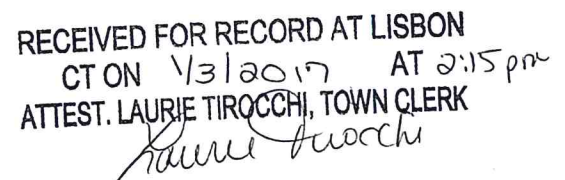 RECEIVED FOR RECORD AT LISBON
CT ON 1/3/2017 AT 2:15 pm
ATTEST. LAURIE TIROCCHI, TOWN CLERK
Laurie Tirocchi